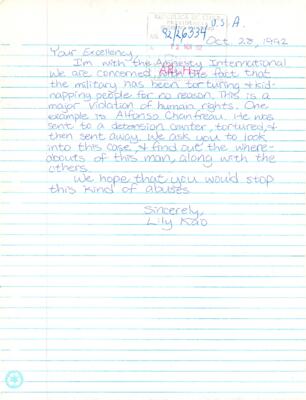 U.S.A.
92/26334
Oct. 28, 1992
Your Excellency,
I'm with the Amnesty International
We are concerned with the fact that
the military has been torturing & kid-
napping people for no reason. This is a
major violation of human rights. One
example is Alfonso Chanfreau. He was
sent to a detension center, tortured, &
then sent away. We ask you to look
into this case, & find out the where-
abouts of this man, along with the
others.
We hope that you would stop
this kind of abuses
Sincerely,
Lily Kao